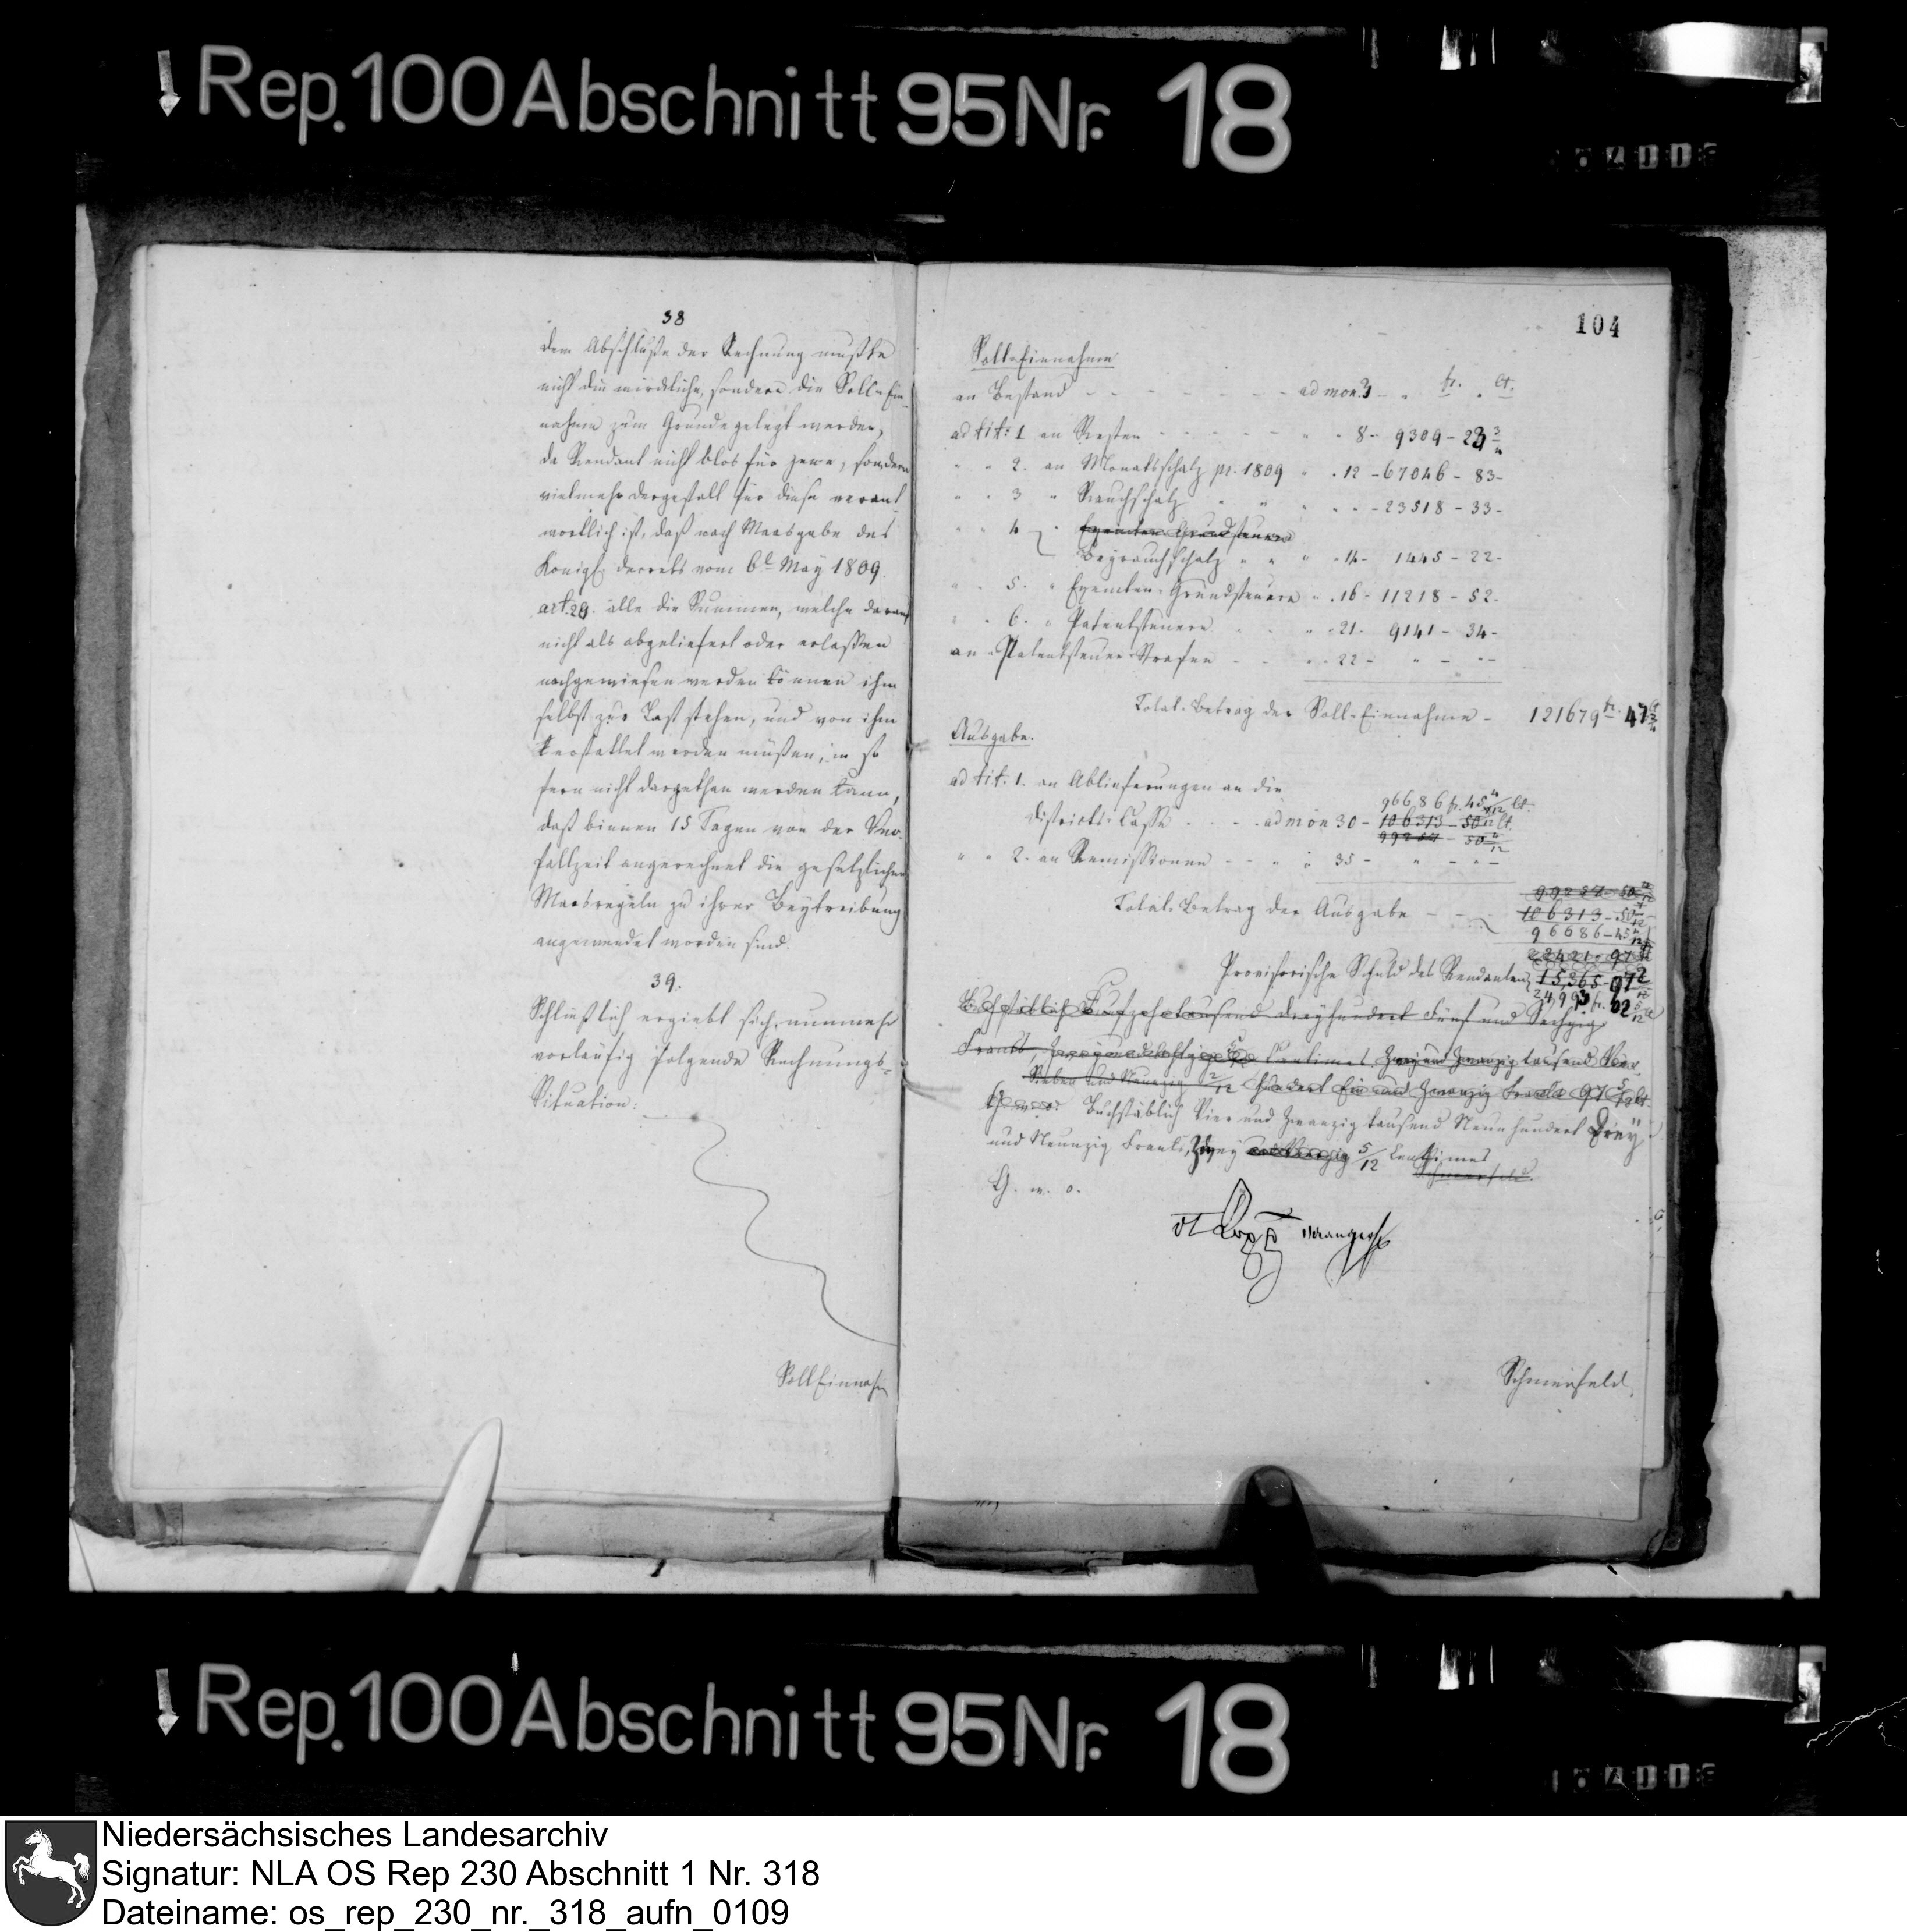 Rep. 100 Abschnitt 95 Nr. 18
38
dem Abschluße der Rechnung mußte
nicht die wirckliche, sondern die Soll-Ein-
nahme zum Grunde gelegt werden,
da Rendant nicht blos für jene, sondern
vielmehr dergestalt für diese verant
wortlich ist, daß nach Maasgabe des
Königl. decrets vom 6t May 1809.
art. 29. alle die Summen, welche darauf
nicht als abgeliefert oder erlaßen
nachgewiesen werden können ihm
selbst zur Last stehen, und von ihm
erstattet werden müßen, in so
fern nicht dargethan werden kann,
daß binnen 15 Tagen von der Ver-
fallzeit angerechnet die gesetzlichen
Maasregeln zu ihrer Beytreibung
angewendet worden sind.
39.
Schließlich ergiebt sich nunmehr
vorläufig folgende Rechnungs-
Situation:
Soll Einnahm
104
Soll-Einnahme
an Bestand - - - - - - ad mon. 3 - " fr. " ct.
ad tit: 1 an Resten - - - - - " " 8 - 9309 - 23 3/4
" " 2. an Monatsschatz pr. 1809 " " 12 - 67046 - 83 -
" " 3 " Rauchschatz " " " " - 23518 - 33 -
" " 4 " Exemten Grundsteuer
Beyrauchschatz " " " " 14 - 1445 - 22 -
" " 5. " Exemten-Grundsteuer " " 16 - 11218 - 52 -
" " 6. " Patentsteuer " " 21 - 9141 - 34 -
an Patentsteuer-Strafen - - " " 22 - " - " -
Total-Betrag der Soll-Einnahme - 121679 fr. 47 3/4
Ausgabe.
ad tit: 1. an Ablieferungen an die
96686 fr. 45 4/12 ct.
Districts-Casse - - - - ad mon 30 - 106313 - 50 4/12 ct.
" " 2. an Remissionen - - " " 35 - " - " -
Total-Betrag der Ausgabe - -
106313 - 50 4/12
96686 - 45 4/12
22421 - 97
Provisorische Schuld des Rendanten 15,365 - 97 2/12
24,993 fr. 02 5/12 ct
Buchstäblich Fünfzehntausend dreyhundert Fünf und Sechzig
Francs, Centimes Zwey und Zwanzig tausend Vier
Sieben und Neunzig 2/12 hundert Ein und Zwanzig Francs 97 5/12 ct
G. w. o. Buchstäblich Vier und Zwanzig tausend Neunhundert Drey
und Neunzig Francs, Zwey 5/12 Centimes
Schmerfeld.
G. w. o.
Schmerfeld.
Rep. 100 Abschnitt 95 Nr. 18
Niedersächsisches Landesarchiv
Signatur: NLA OS Rep 230 Abschnitt 1 Nr. 318
Dateiname: os_rep_230_nr._318_aufn_0109